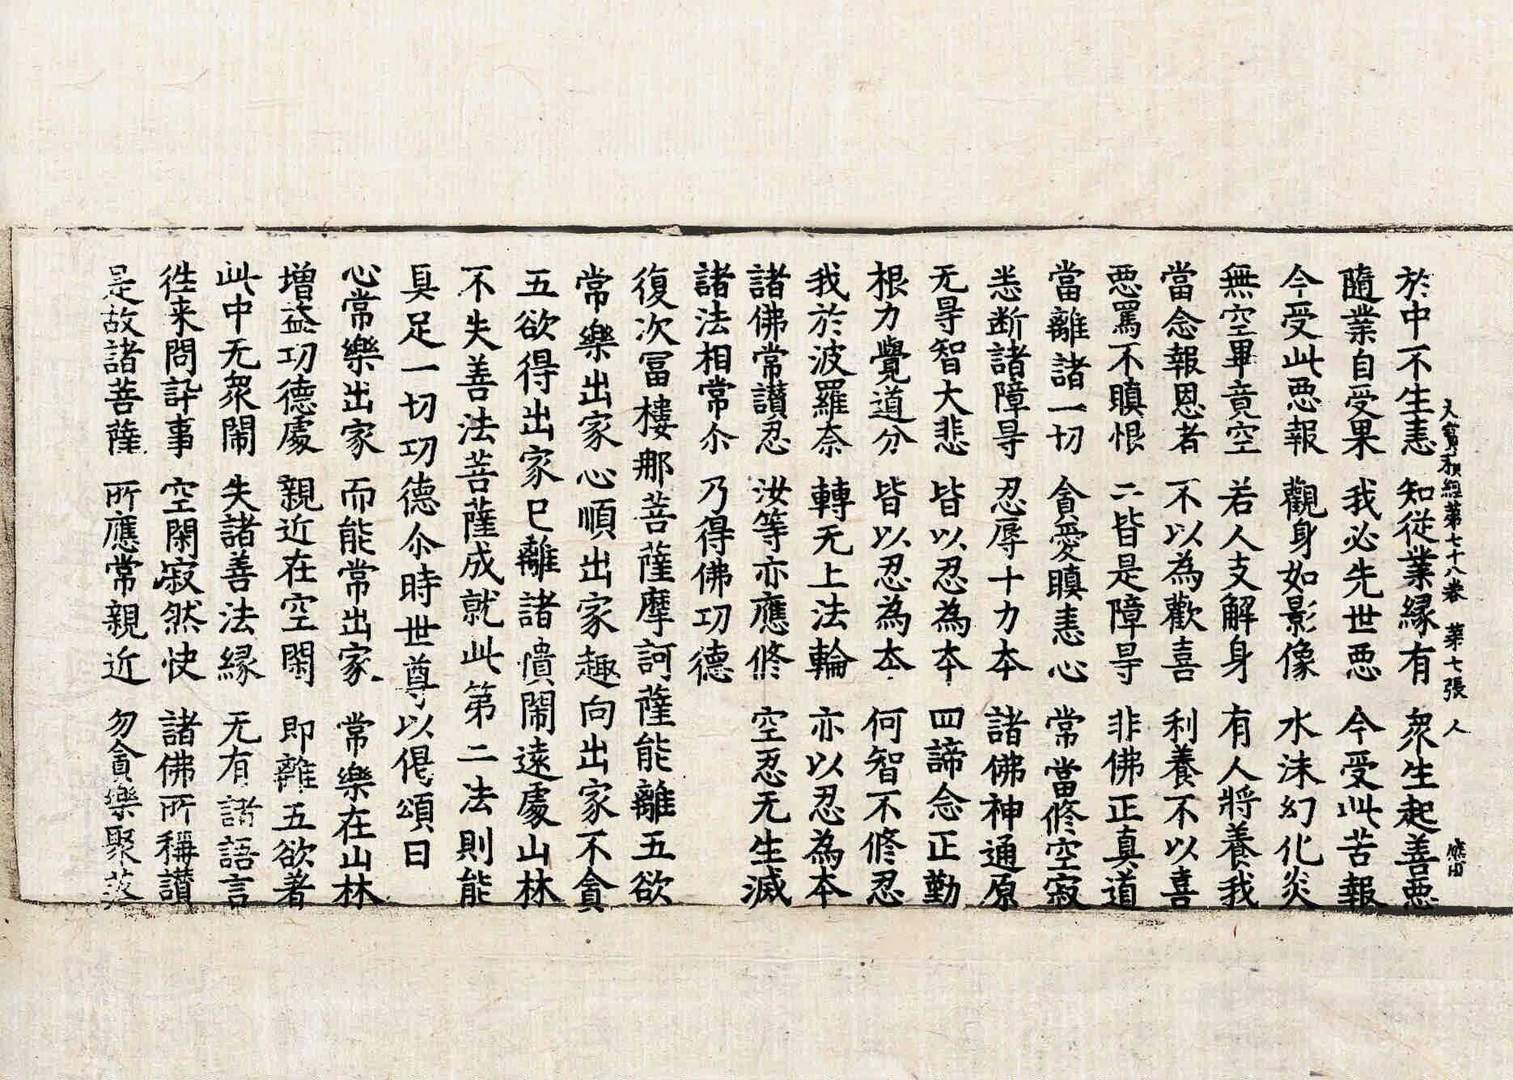 大寶積經第七十八卷 第七張 人
於中不生恚 知從業縁有 衆生起善惡
隨業自受果 我必先世惡 今受此苦報
今受此惡報 觀身如影像 水沫幻化炎
無空畢竟空 若人支解身 有人將養我
當念報恩者 不以為歡喜 利養不以喜
惡罵不瞋恨 二皆是障㝵 非佛正真道
當離諸一切 貪愛瞋恚心 常當修空寂
悉断諸障㝵 忍辱十力本 諸佛神通原
无㝵智大悲 皆以忍為本 四諦念正勤
根力覺道分 皆以忍為本 何智不修忍
我於波羅奈 轉无上法輪 亦以忍為本
諸佛常讃忍 汝等亦應修 空忍无生滅
諸法相常尒 乃得佛功德
復次冨樓那菩薩摩訶薩能離五欲
常樂出家心順出家趣向出家不貪
五欲得出家已離諸憒閙遠處山林
不失善法菩薩成就此第二法則能
具足一切功德尒時世尊以偈頌曰
心常樂出家 而能常出家 常樂在山林
増益功德處 親近在空閑 即離五欲者
此中无衆閙 失諸善法縁 无有諸語言
徃来問訊事 空閑寂然快 諸佛所稱讃
是故諸菩薩 所應常親近 勿貪樂聚落